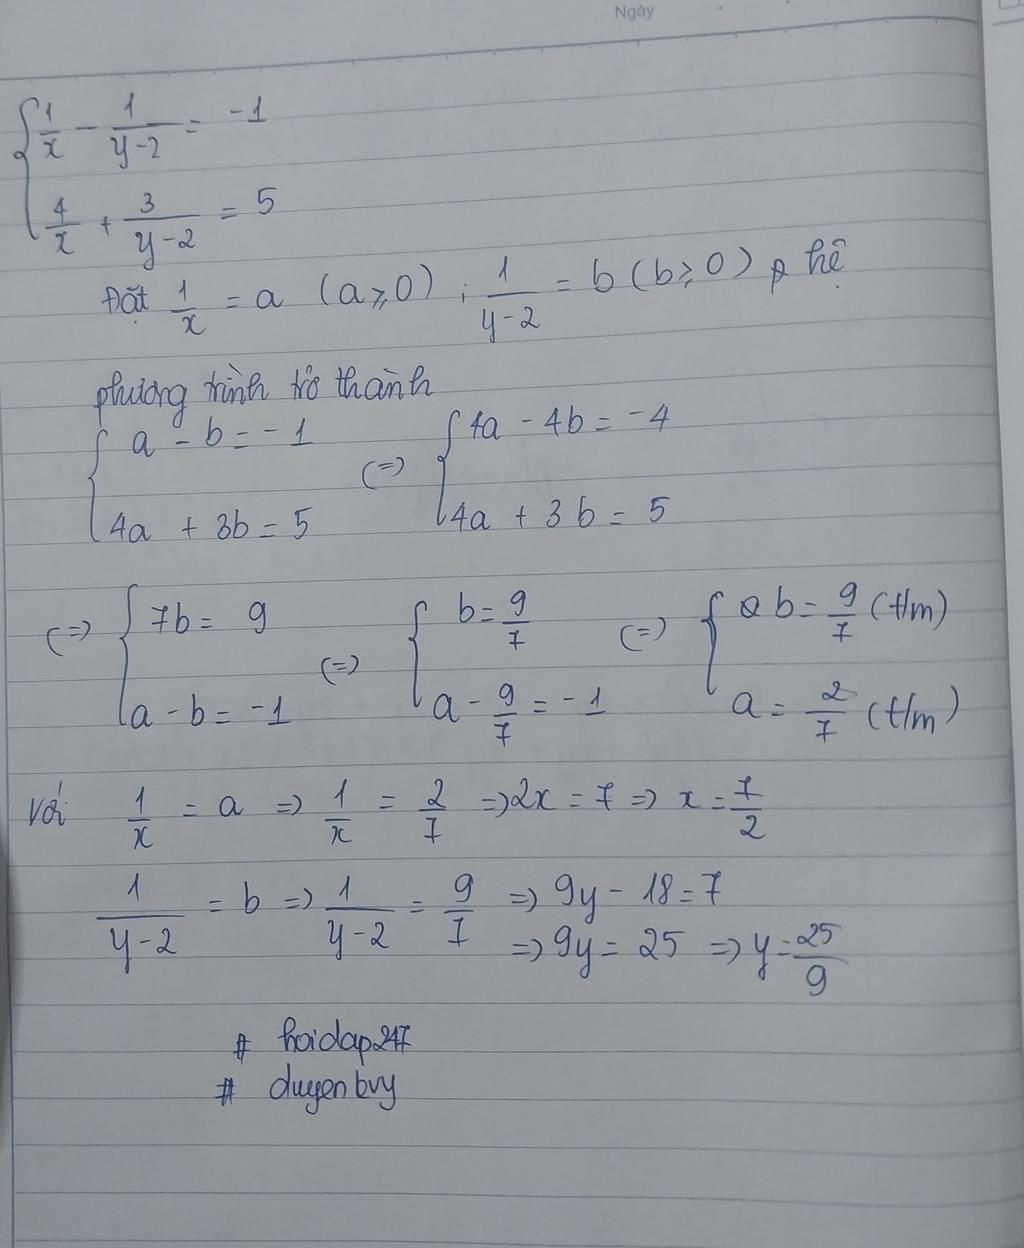 Ngày
{ 1/x - 1/(y-2) = -1
4/x + 3/(y-2) = 5
Đặt 1/x = a (a ≥ 0) ; 1/(y-2) = b (b ≥ 0) hệ
phương trình trở thành
{ a - b = -1 (=) { 4a - 4b = -4
4a + 3b = 5 4a + 3b = 5
(=) { 7b = 9 (=) { b = 9/7 (=) { b = 9/7 (t/m)
a - b = -1 a - 9/7 = -1 a = 2/7 (t/m)
Với 1/x = a => 1/x = 2/7 => 2x = 7 => x = 7/2
1/(y-2) = b => 1/(y-2) = 9/7 => 9y - 18 = 7
=> 9y = 25 => y = 25/9
# hoidap247
# duyenbvy